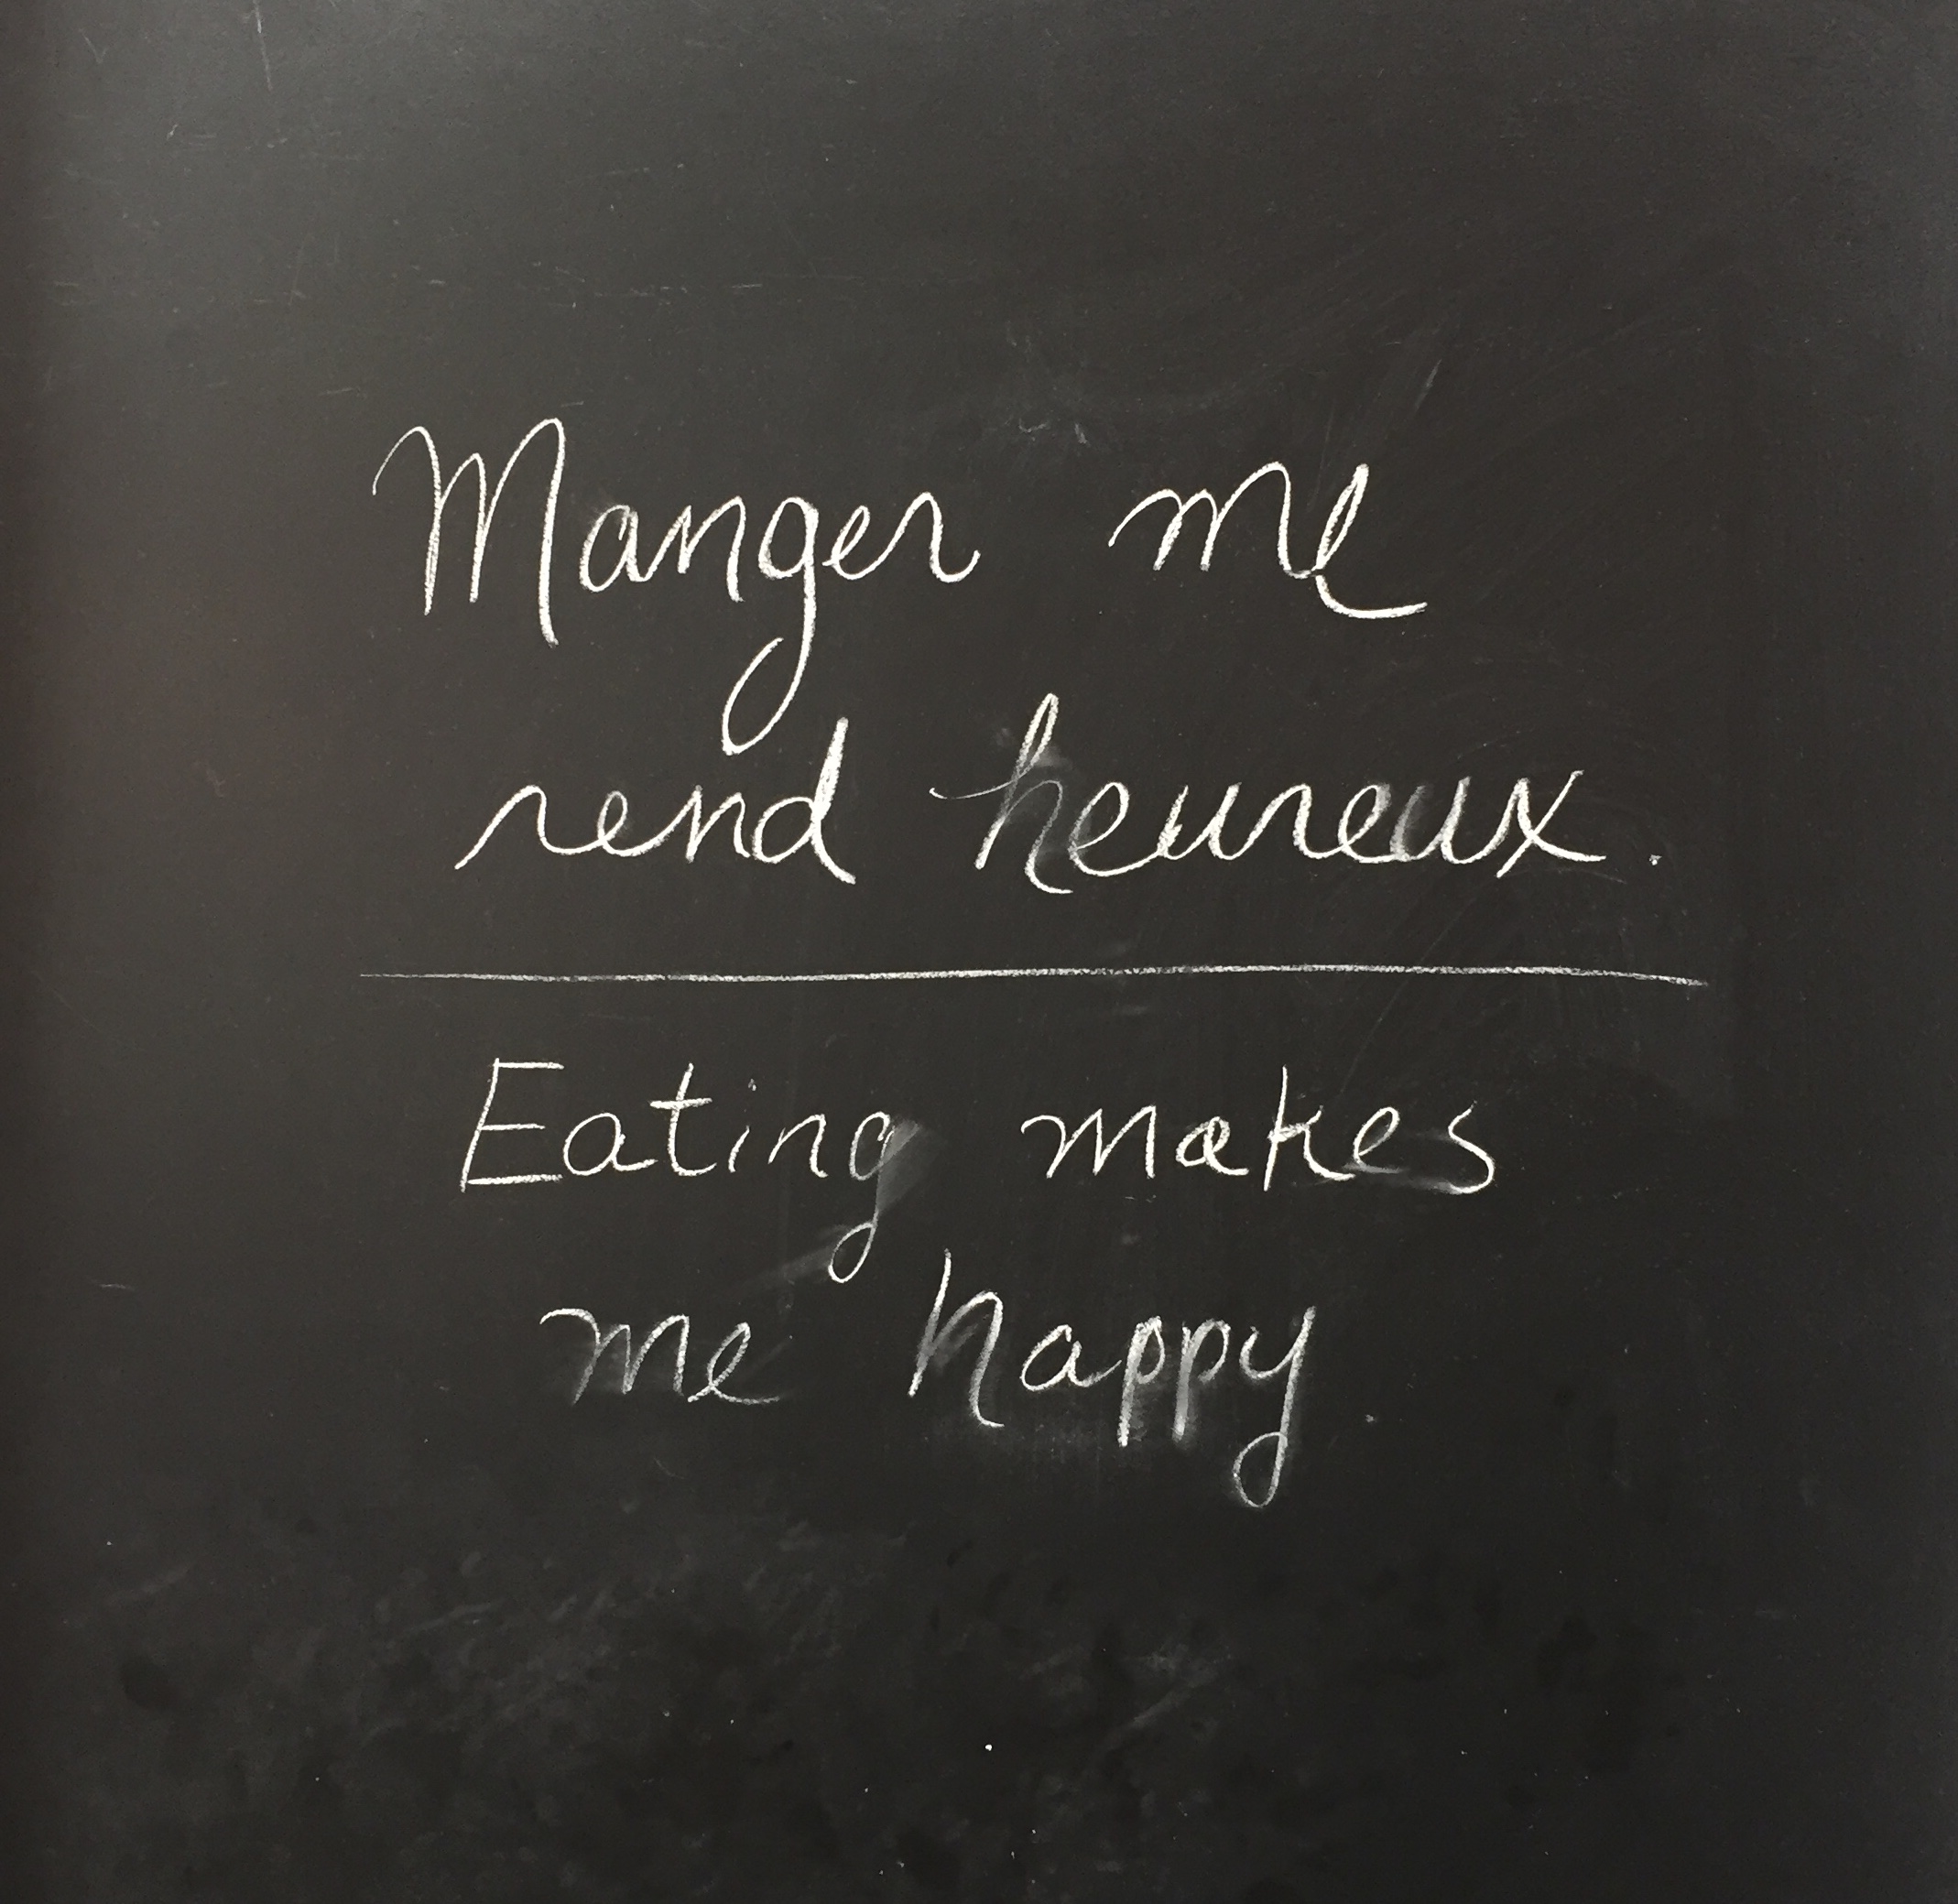 Manger me
rend heureux.
Eating makes
me happy.